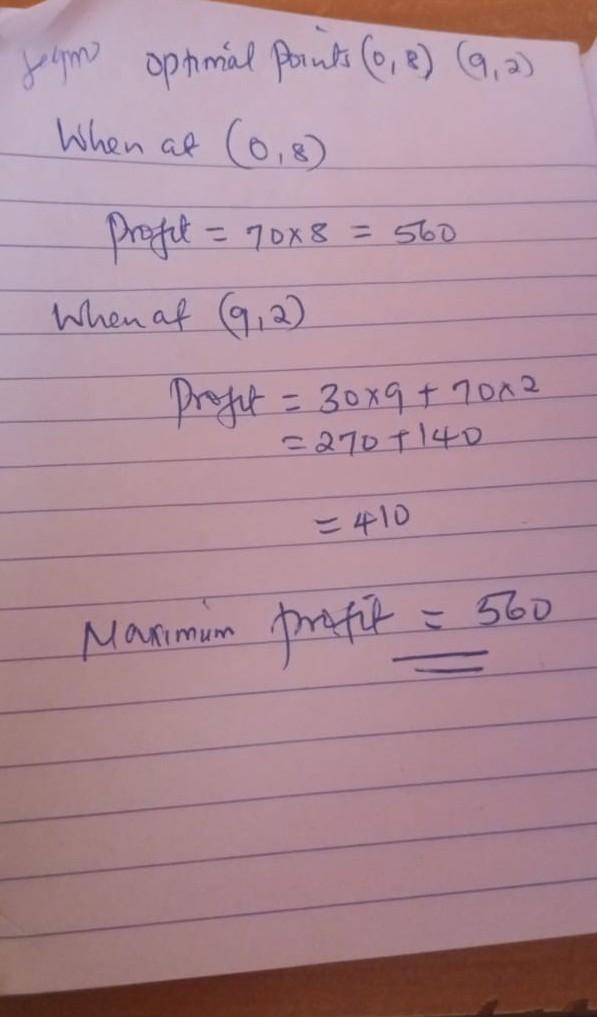 optimal points (0,8) (9,2)
When at (0,8)
Profit = 70x8 = 560
When at (9,2)
Profit = 30x9 + 70x2
= 270 + 140
= 410
Maximum profit = 560